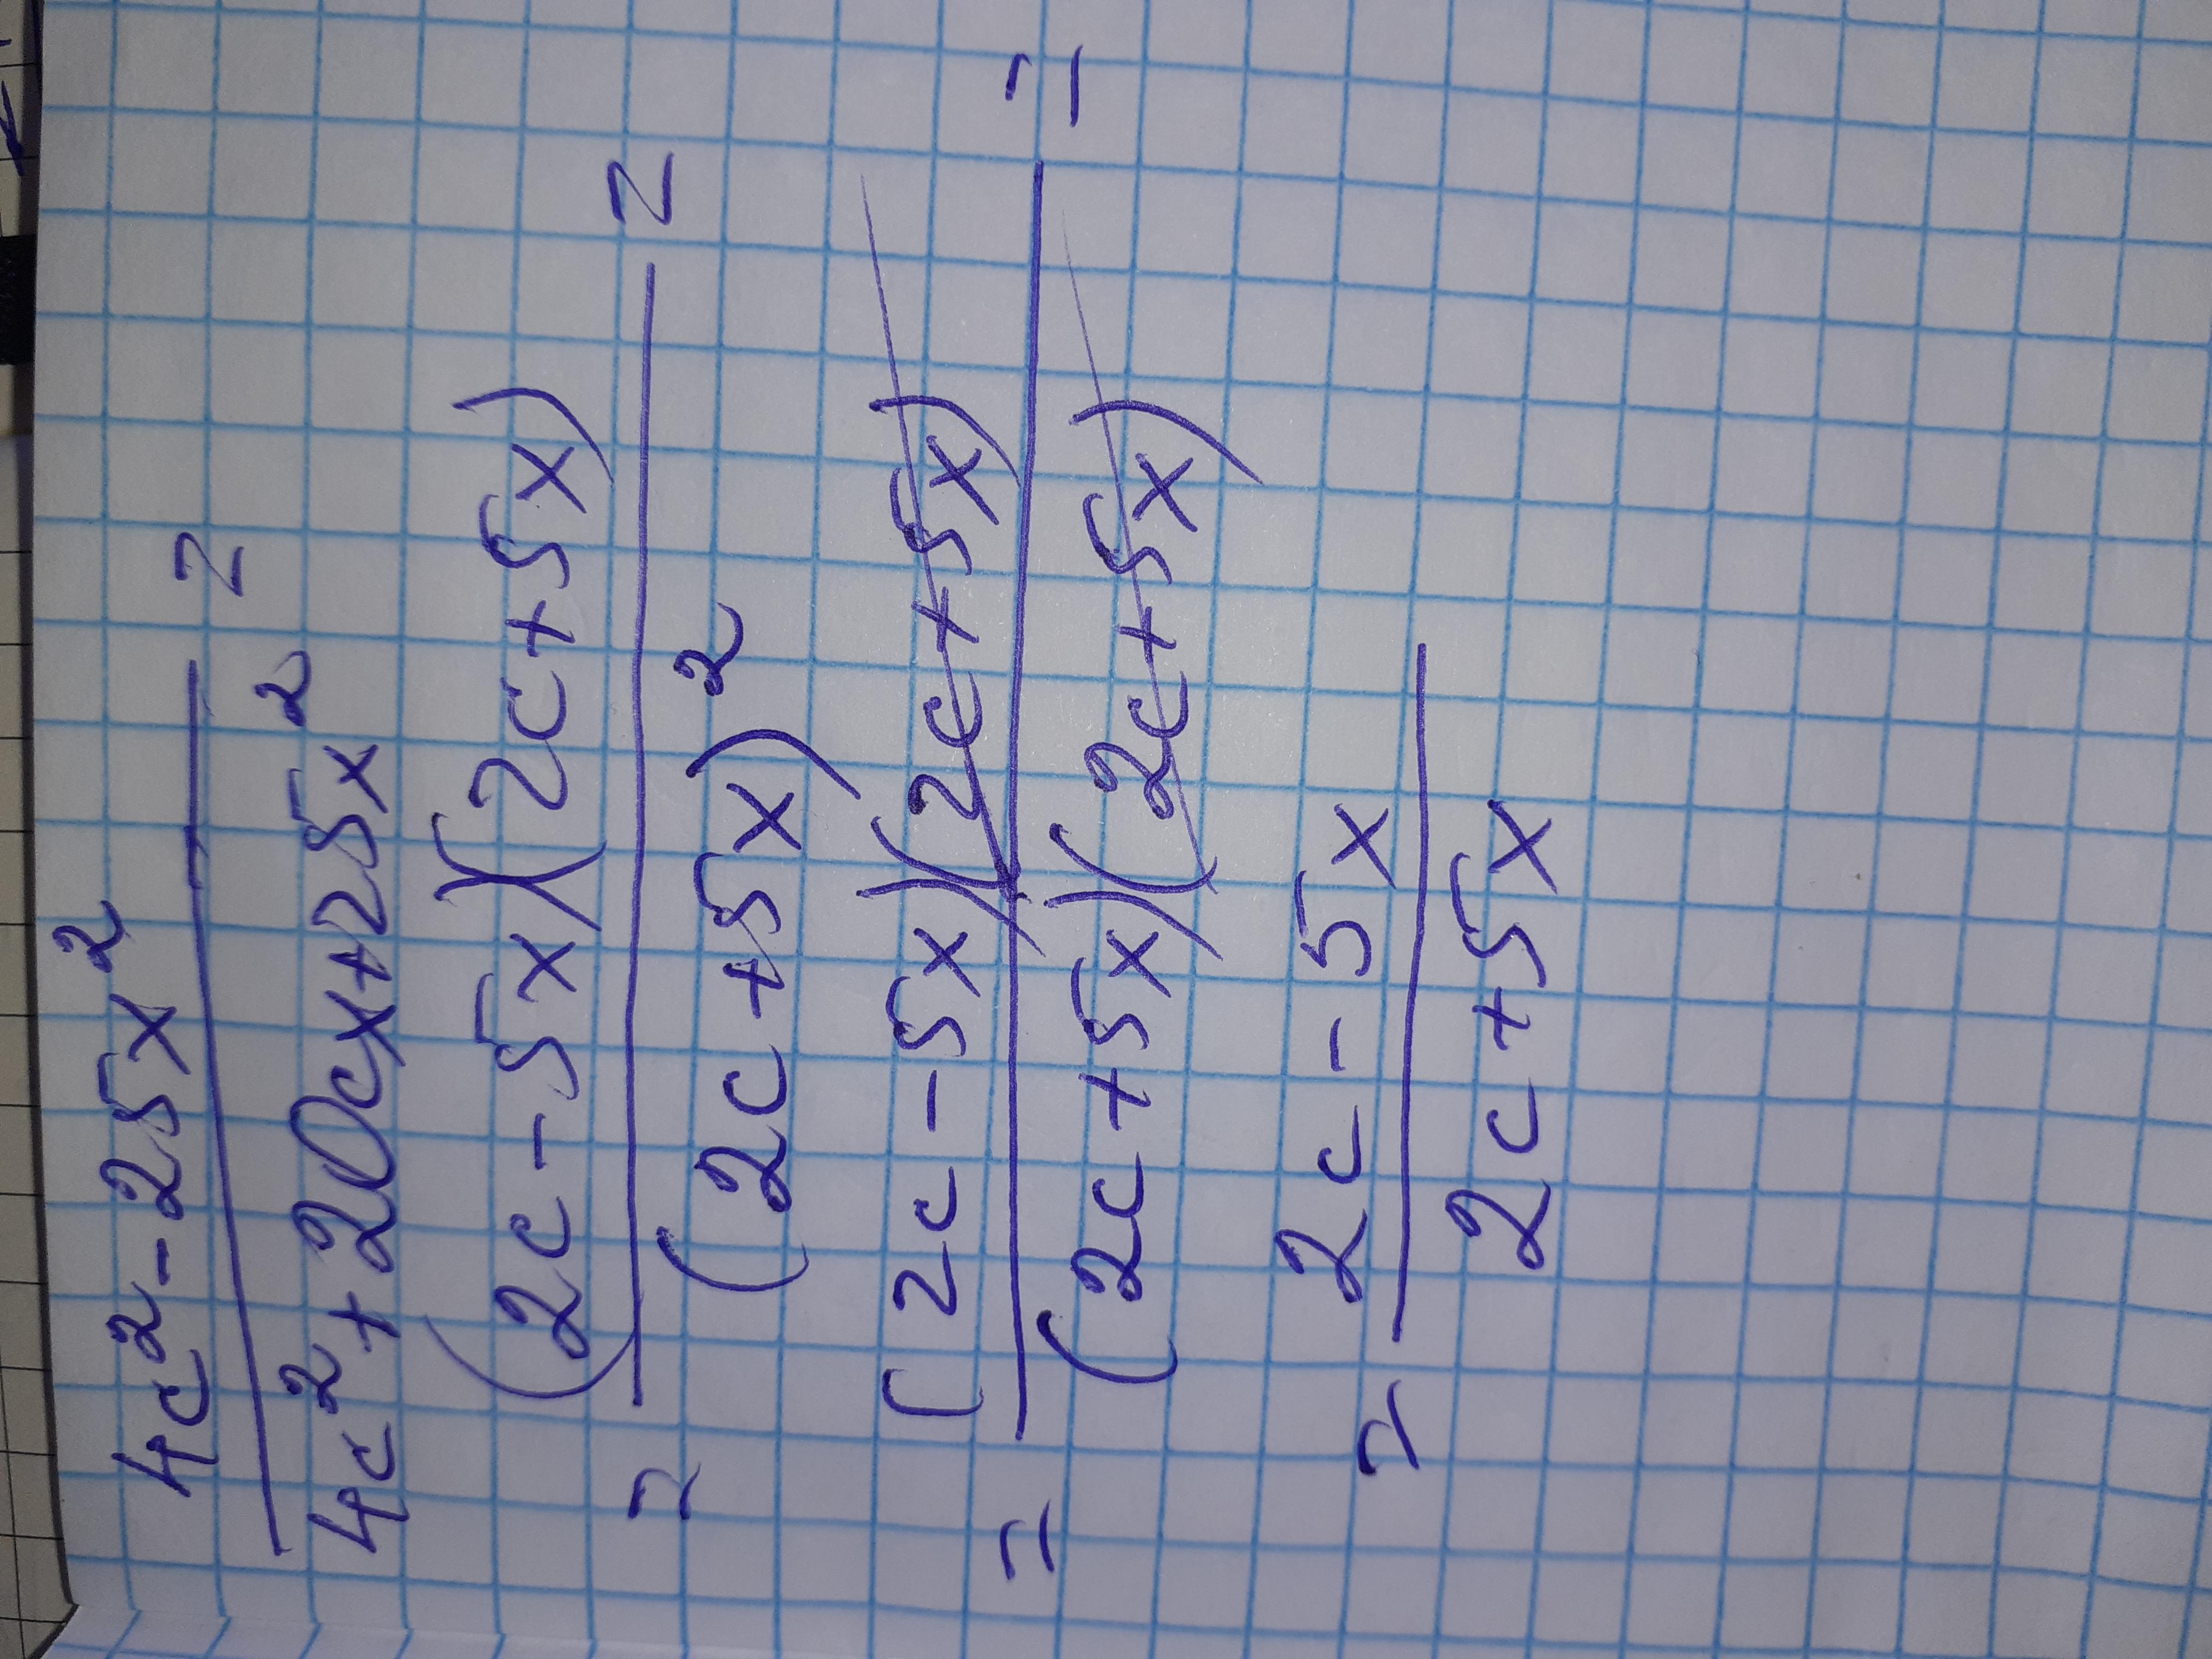 4c² - 25x²
4c² + 20cx + 25x² =
= (2c - 5x)(2c + 5x) =
(2c + 5x)²
= (2c - 5x)(2c + 5x) =
(2c + 5x)(2c + 5x)
= 2c - 5x
2c + 5x